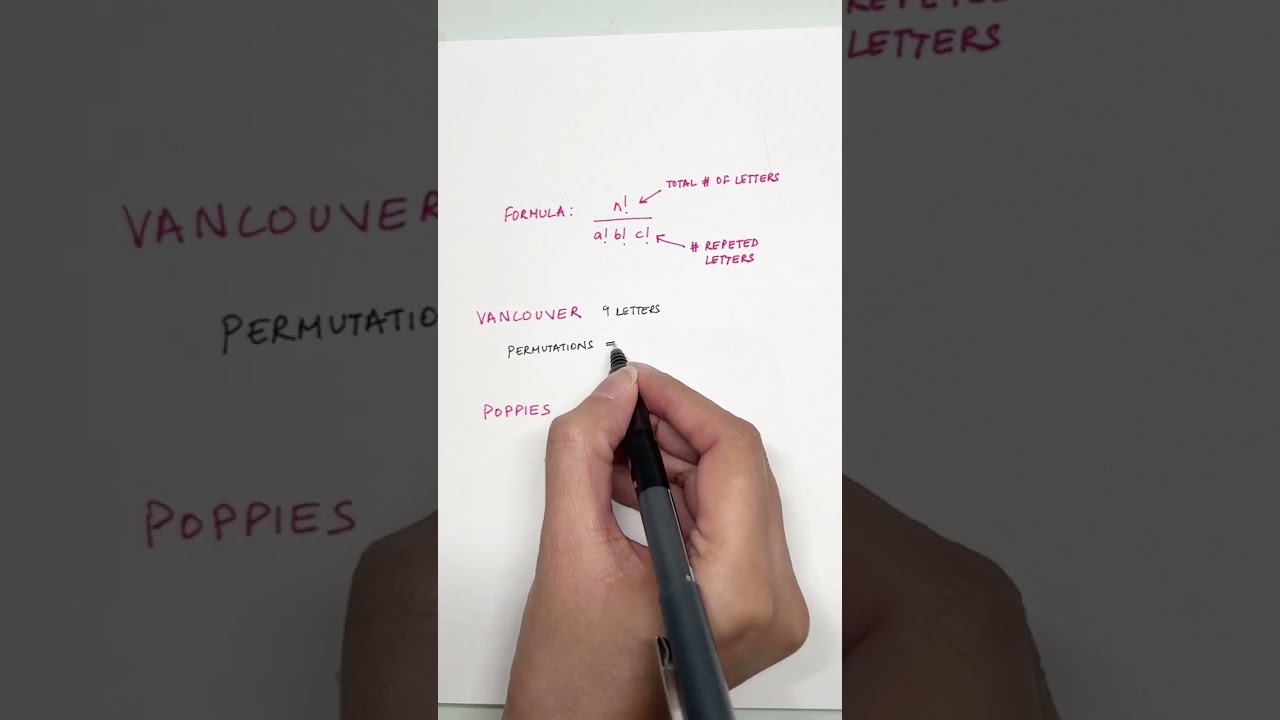 TOTAL # OF LETTERS
FORMULA: n!
a! b! c!
# REPETED
LETTERS
VANCOUVER 9 LETTERS
PERMUTATIONS =
POPPIES
REPETED
LETTERS
VANCOUVER
PERMUTATIO
POPPIES